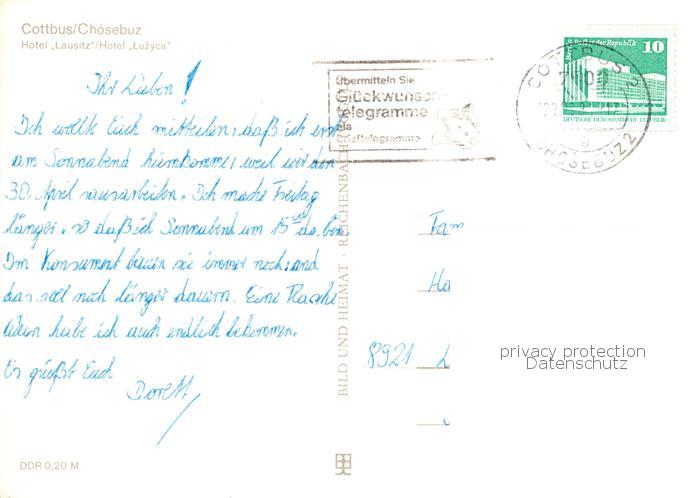 Cottbus/Chósebuz
Hotel „Lausitz“/Hotel „Łužyca“
Ihr Lieben!
Ich wollte Euch mitteilen, daß ich erst
am Sonnabend hinkomme, weil wir den
30. April rausarbeiten. Ich mache Freitag
länger, so daß ich Sonnabend um 15 00 da bin.
Im Konsument bauen sie immer noch, und
das soll noch länger dauern. Eine Flasche
Wein habe ich auch endlich bekommen.
Es grüßt Euch
Dorett
DDR 0,20 M
BILD UND HEIMAT · REICHENBACH
Übermitteln Sie
Glückwunsch-
telegramme
als
COTTBUS 2
7500
CHOSEBUZ 2
Berlin, Palast der Republik
10
DEUTSCHE DEMOKRATISCHE REPUBLIK
Fam
Ha
8921 L
privacy protection
Datenschutz